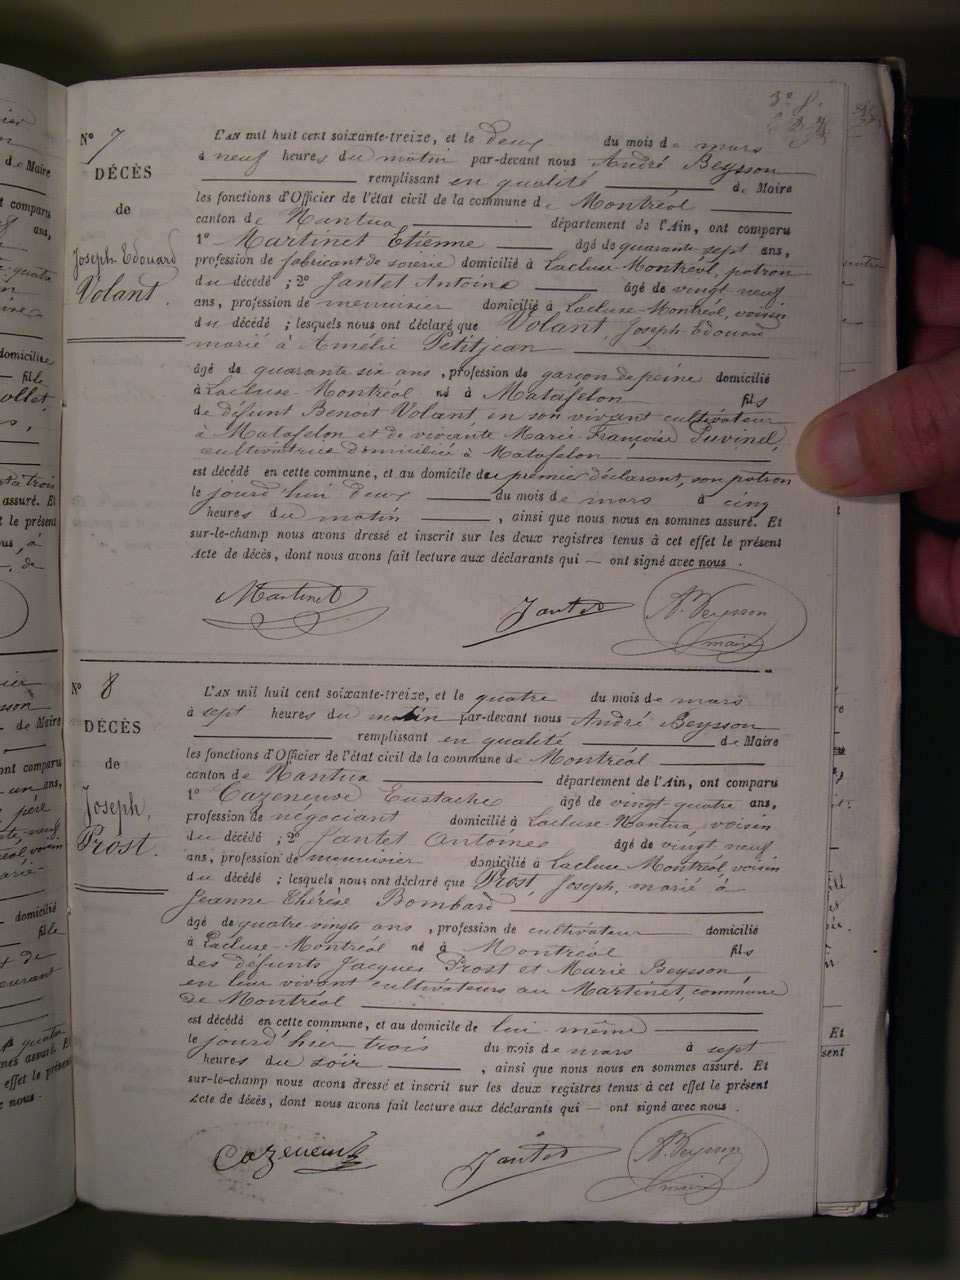 N° 7
DÉCÈS
de
Joseph Edouard
Volant.
L'AN mil huit cent soixante-treize, et le deux du mois de mars
à neuf heures du matin par-devant nous André Beysson
remplissant en qualité de Maire
les fonctions d'Officier de l'état civil de la commune de Montréal
canton de Nantua département de l'Ain, ont comparu
1° Martinet Etienne âgé de quarante-sept ans,
profession de fabricant de soierie domicilié à Lacluse-Montréal, patron
du décédé ; 2° Jantet Antoine âgé de vingt-neuf
ans, profession de menuisier domicilié à Lacluse-Montréal, voisin
du décédé ; lesquels nous ont déclaré que Volant, Joseph Edouard
marié à Amélie Petitjean
âgé de quarante six ans, profession de garçon de peine domicilié
à Lacluse-Montréal né à Matafelon fils
de défunt Benoit Volant en son vivant cultivateur
à Matafelon et de vivante Marie-Françoise Juvinel,
cultivatrice domiciliée à Matafelon
est décédé en cette commune, et au domicile du premier déclarant, son patron
le jourd'hui deux du mois de mars à cinq
heures du matin, ainsi que nous nous en sommes assuré. Et
sur-le-champ nous avons dressé et inscrit sur les deux registres tenus à cet effet le présent
Acte de décès, dont nous avons fait lecture aux déclarants qui — ont signé avec nous.
Martinet Jantet A. Beysson
maire
N° 8
DÉCÈS
de
Joseph,
Prost.
L'AN mil huit cent soixante-treize, et le quatre du mois de mars
à sept heures du matin par-devant nous André Beysson
remplissant en qualité de Maire
les fonctions d'Officier de l'état civil de la commune de Montréal
canton de Nantua département de l'Ain, ont comparu
1° Cazeneuve Eustache âgé de vingt quatre ans,
profession de négociant domicilié à Lacluse-Nantua, voisin
du décédé ; 2° Jantet Antoine âgé de vingt neuf
ans, profession de menuisier domicilié à Lacluse Montréal voisin
du décédé ; lesquels nous ont déclaré que Prost, Joseph, marié à
Jeanne Thérèse Bombard
âgé de quatre-vingts ans, profession de cultivateur domicilié
à Lacluse-Montréal né à Montréal fils
des défunts Jacques Prost et Marie Beysson,
en leur vivant cultivateurs au Martinet, commune
de Montréal
est décédé en cette commune, et au domicile de lui-même
le jourd'hier trois du mois de mars à sept
heures du soir, ainsi que nous nous en sommes assuré. Et
sur-le-champ nous avons dressé et inscrit sur les deux registres tenus à cet effet le présent
Acte de décès, dont nous avons fait lecture aux déclarants qui — ont signé avec nous.
Cazeneuve Jantet A. Beysson
maire